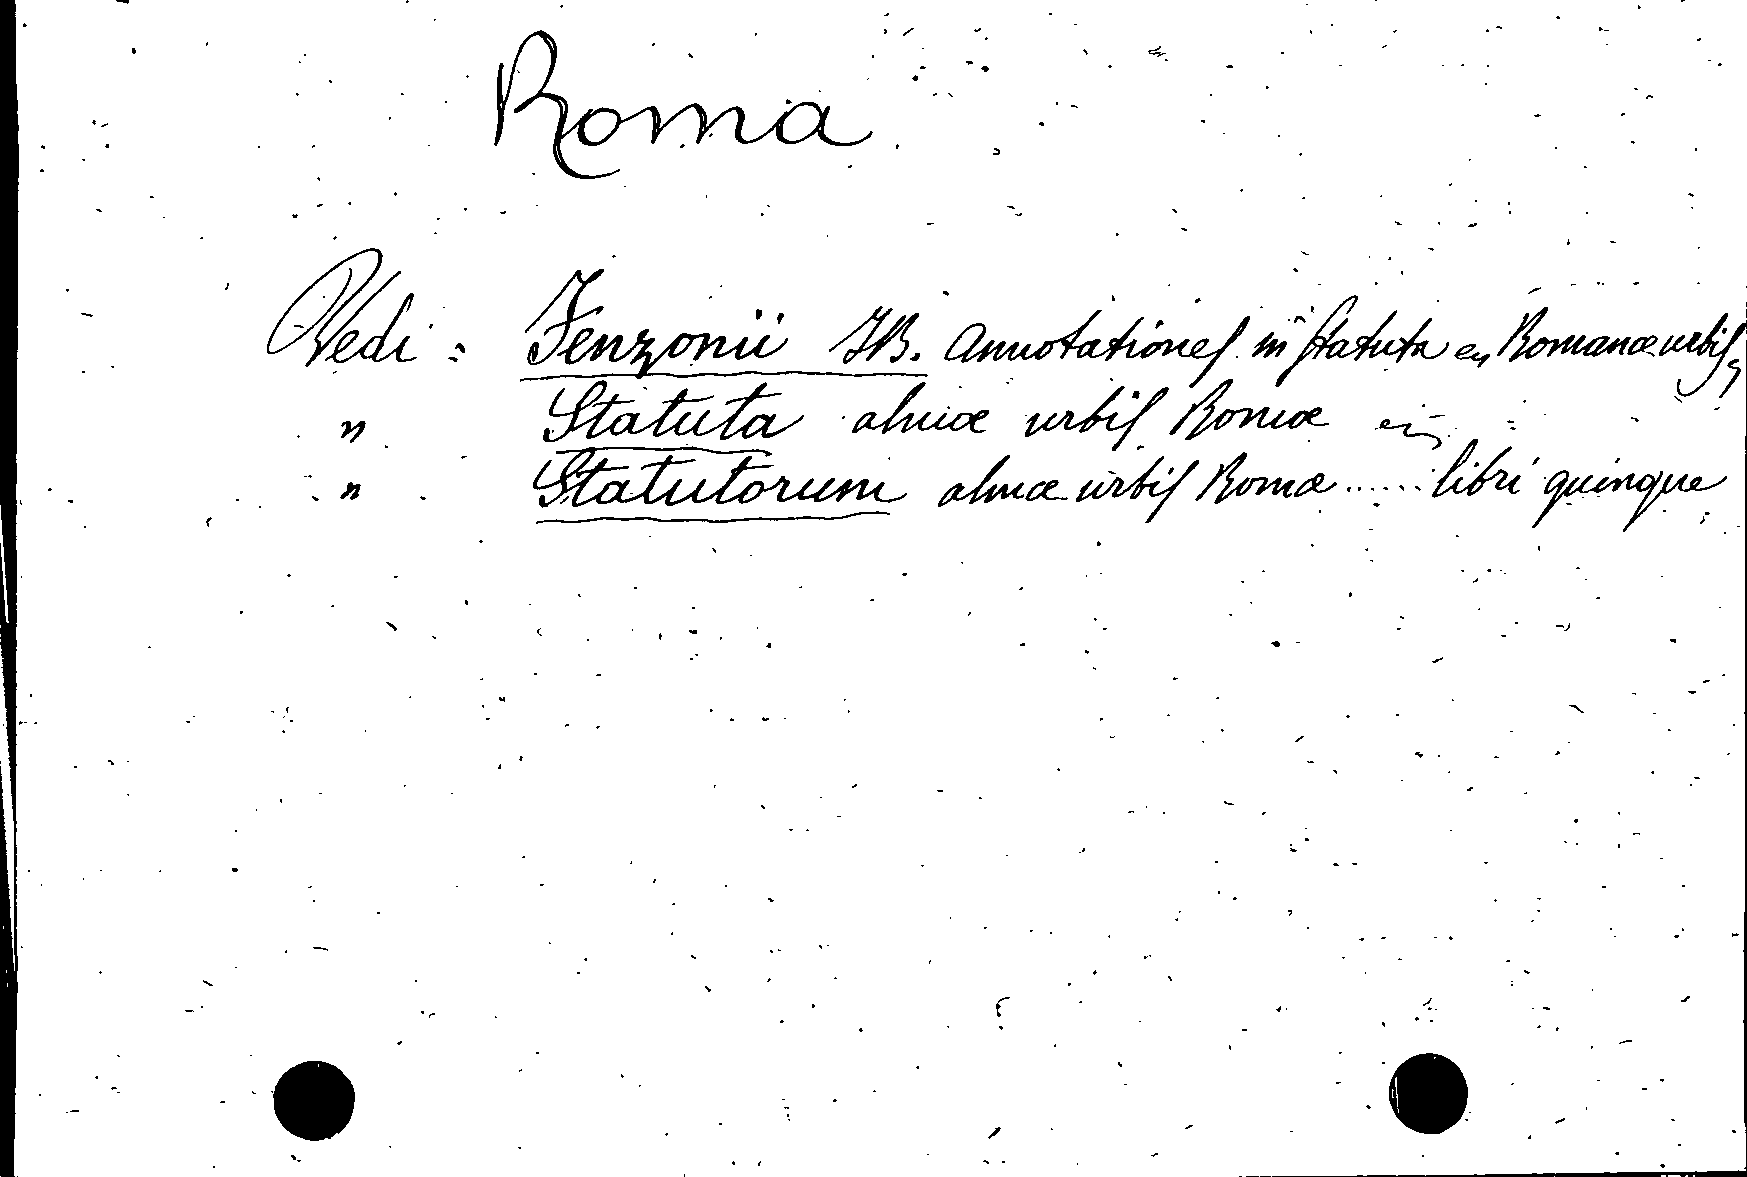 Roma
Vedi : Fenzonii JB. Annotationes in statuta Romanæ urbis
" Statuta almæ urbis Romæ
" Statutorum almæ urbis Romæ ..... libri quinque